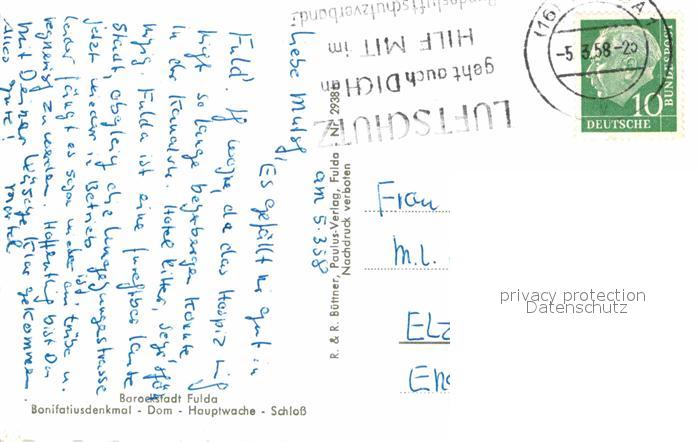 Liebe Mutsch,
am 5.3.58
Es gefällt mir gut in
Fulda. Ich wohne, da das Hospiz mich
nicht so lange beherbergen konnte
in der Kanalstr. Hotel Ritter, sehr
ruhig. Fulda ist eine furchtbar laute
Stadt, obgleich die Umgehungsstrasse
jetzt wieder in Betrieb ist,
leider fängt es schon wieder an, trübe u.
regnerisch zu werden. Hoffentlich bist Du
mit Deiner Wäsche klar gekommen.
Alles Gute!
Barockstadt Fulda
Bonifatiusdenkmal - Dom - Hauptwache - Schloß
R. & R. Büttner, Paulus-Verlag, Fulda Nr. 2938
Nachdruck verboten
LUFTSCHUTZ
geht auch DICH an
HILF MIT im
Bundesluftschutzverband!
(16)
-5.3.58-
DEUTSCHE
BUNDESPOST
10
Frau
M.L.
ELZ
privacy protection
Datenschutz